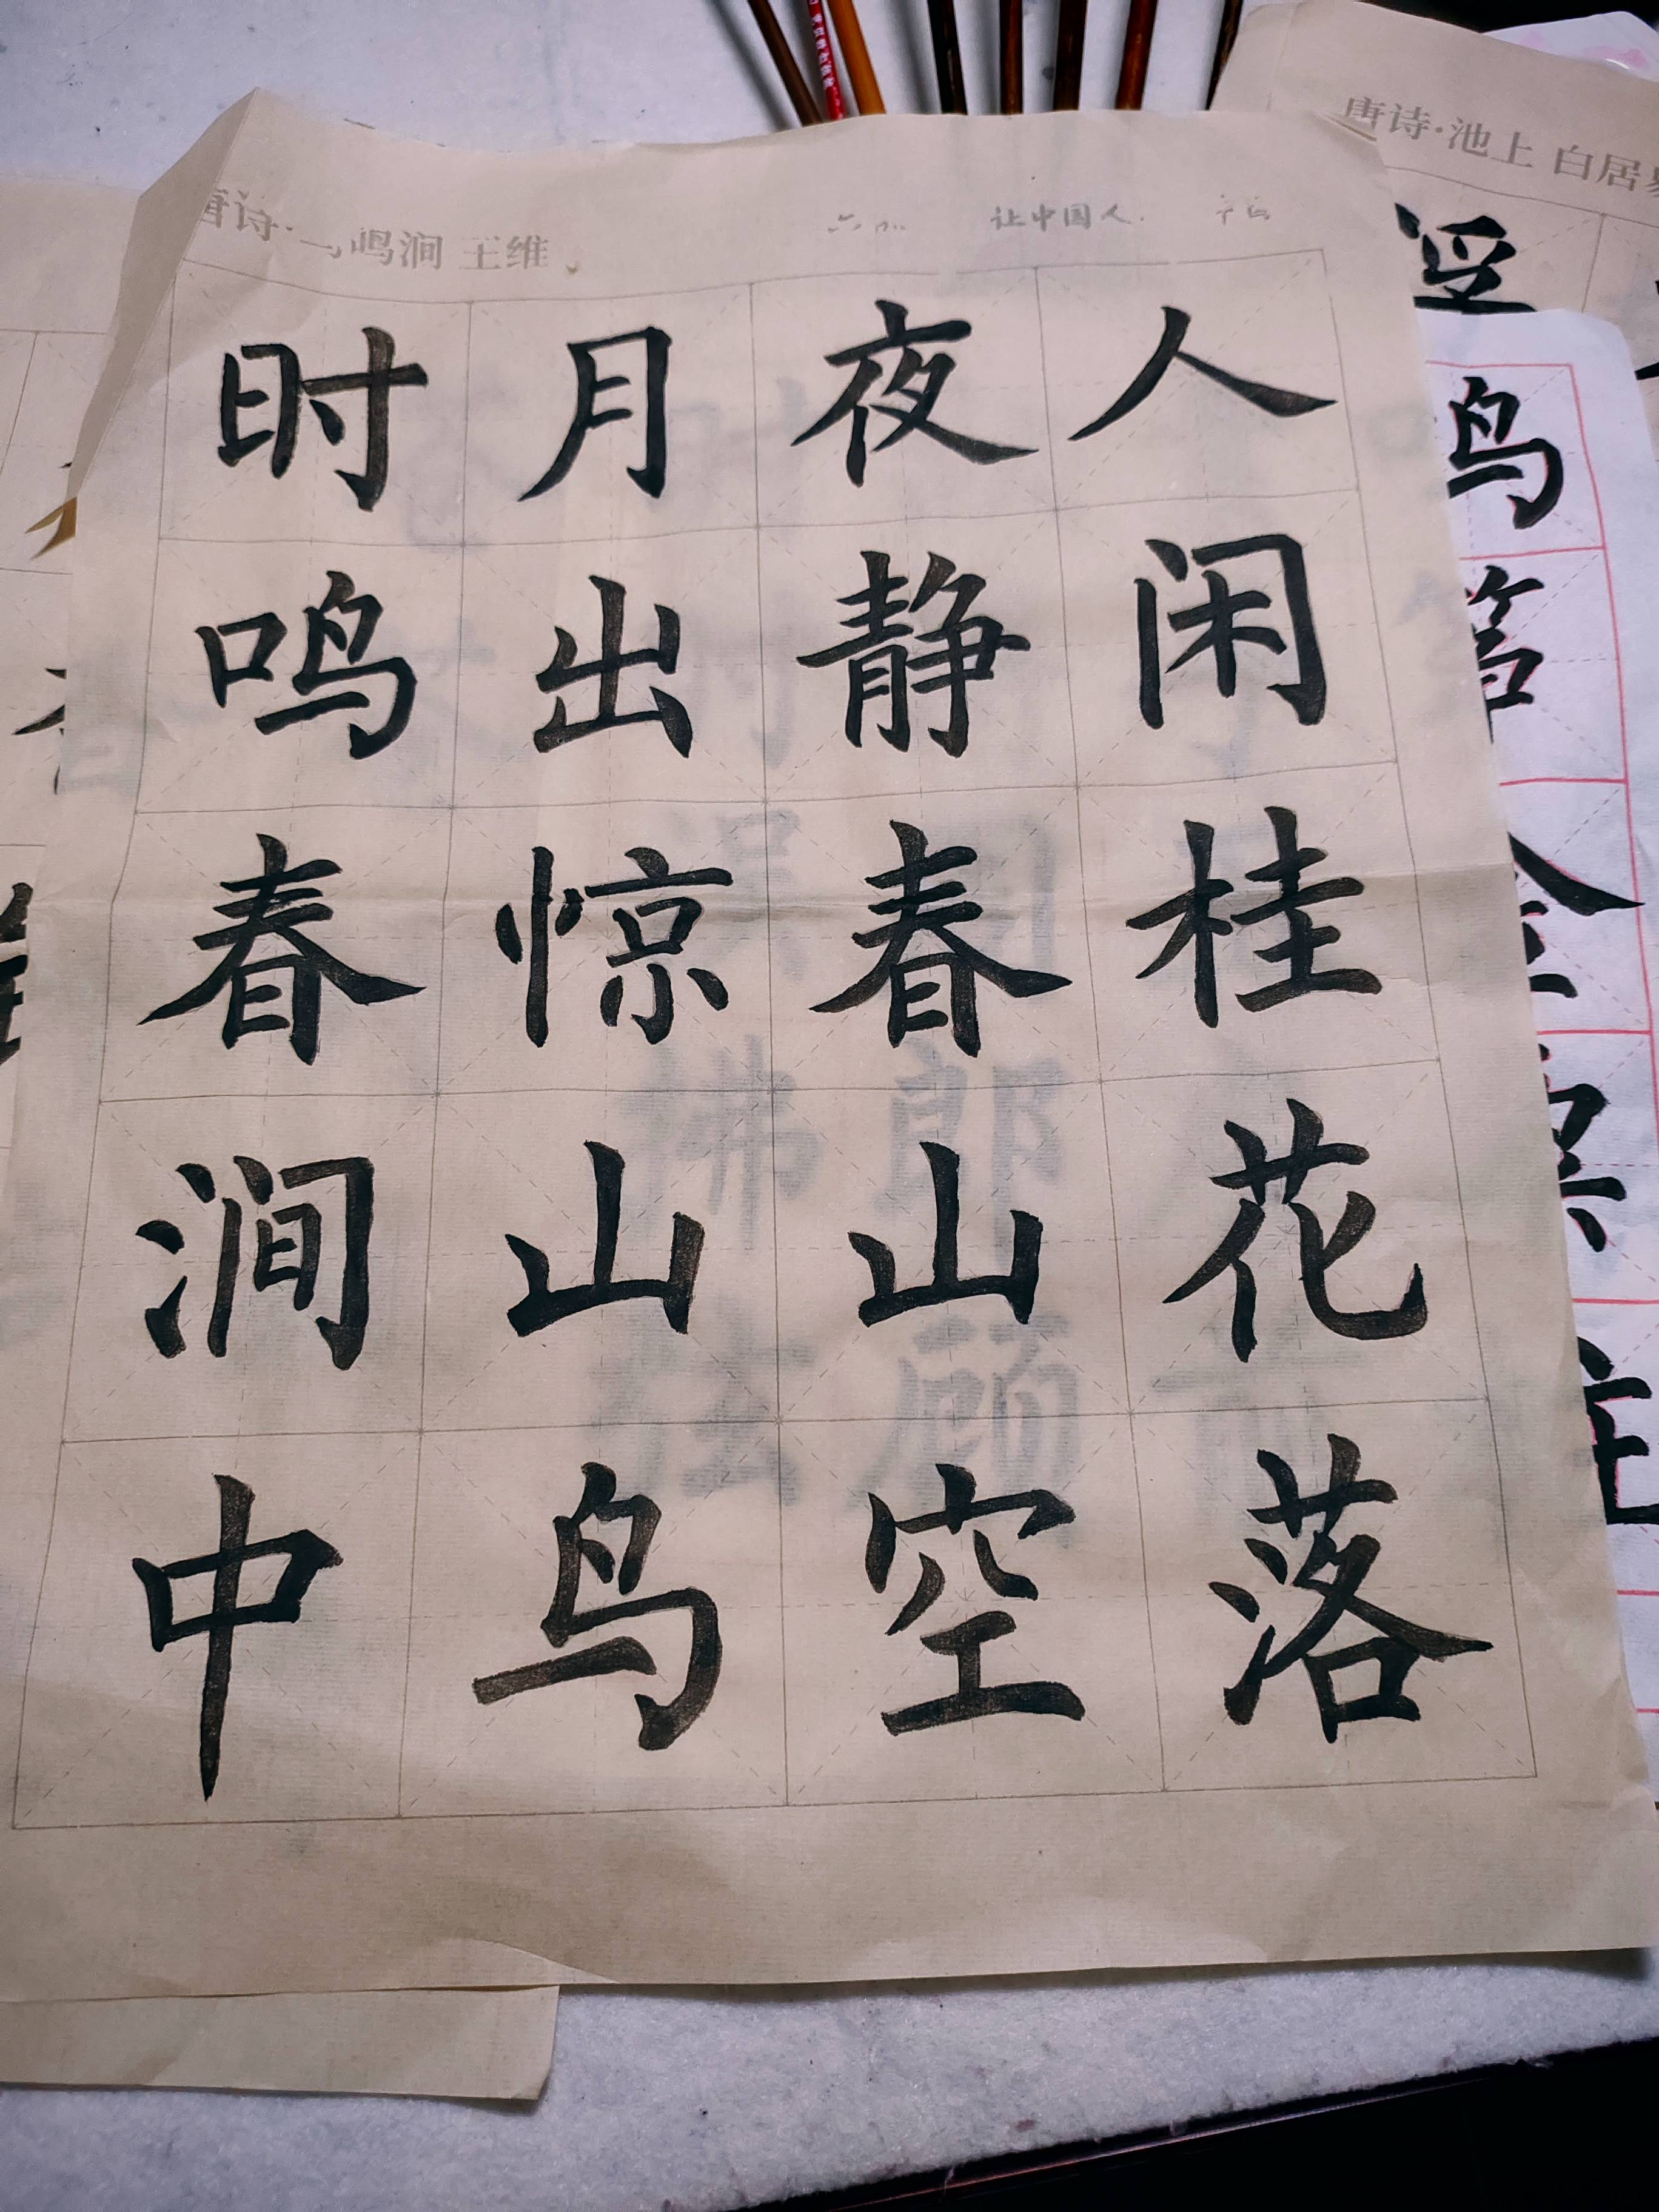 唐诗·鸟鸣涧 王维
让中国人
人闲桂花落
夜静春山空
月出惊山鸟
时鸣春涧中
唐诗·池上 白居易